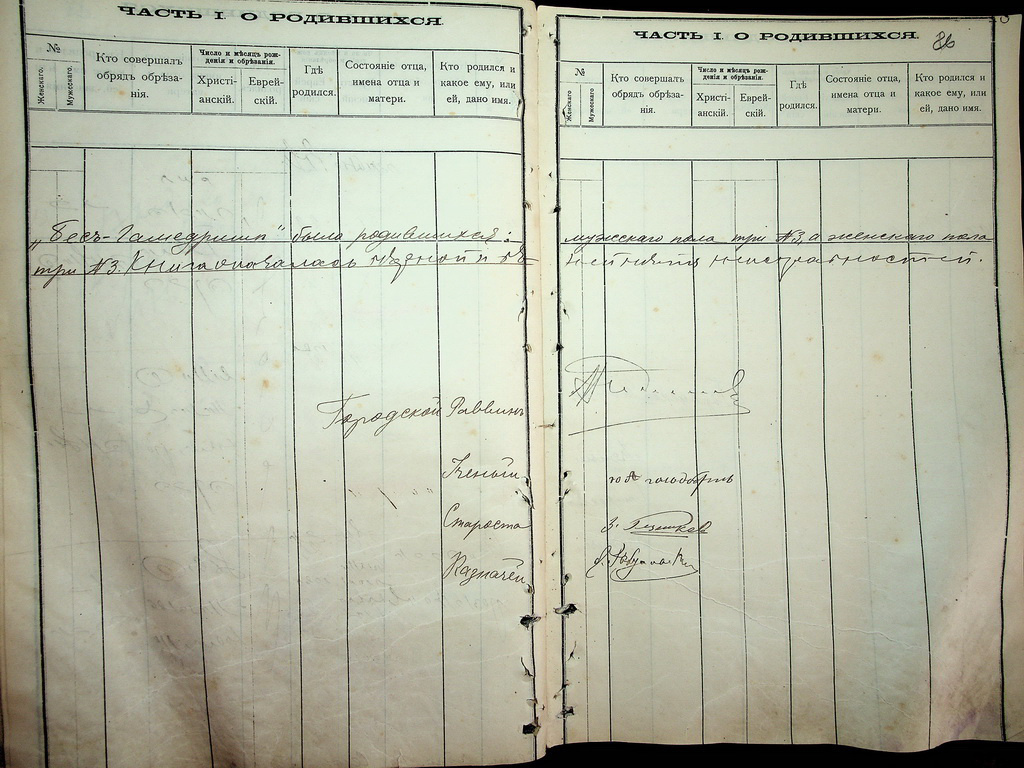 ЧАСТЬ I. О РОДИВШИХСЯ.
№
Женскаго.
Мужескаго.
Кто совершалъ
обрядъ обрѣза-
нія.
Число и мѣсяцъ рож-
денія и обрѣзанія.
Христі-
анскій.
Еврей-
скій.
Гдѣ
родился.
Состояніе отца,
имена отца и
матери.
Кто родился и
какое ему, или
ей, дано имя.
„Бесъ-Гамедришъ" было родившихся:
три №3. Книга
Городской Раввинъ
Ученый
Староста
Казначей
ЧАСТЬ I. О РОДИВШИХСЯ.
86
№
Женскаго
Мужескаго
Кто совершалъ
обрядъ обрѣза-
нія.
Число и мѣсяцъ рож-
денія и обрѣзанія.
Христі-
анскій.
Еврей-
скій.
Гдѣ
родился.
Состояніе отца,
имена отца и
матери.
Кто родился и
какое ему, или
ей, дано имя.
мужескаго пола три №3, а женскаго пола
неисправностей.